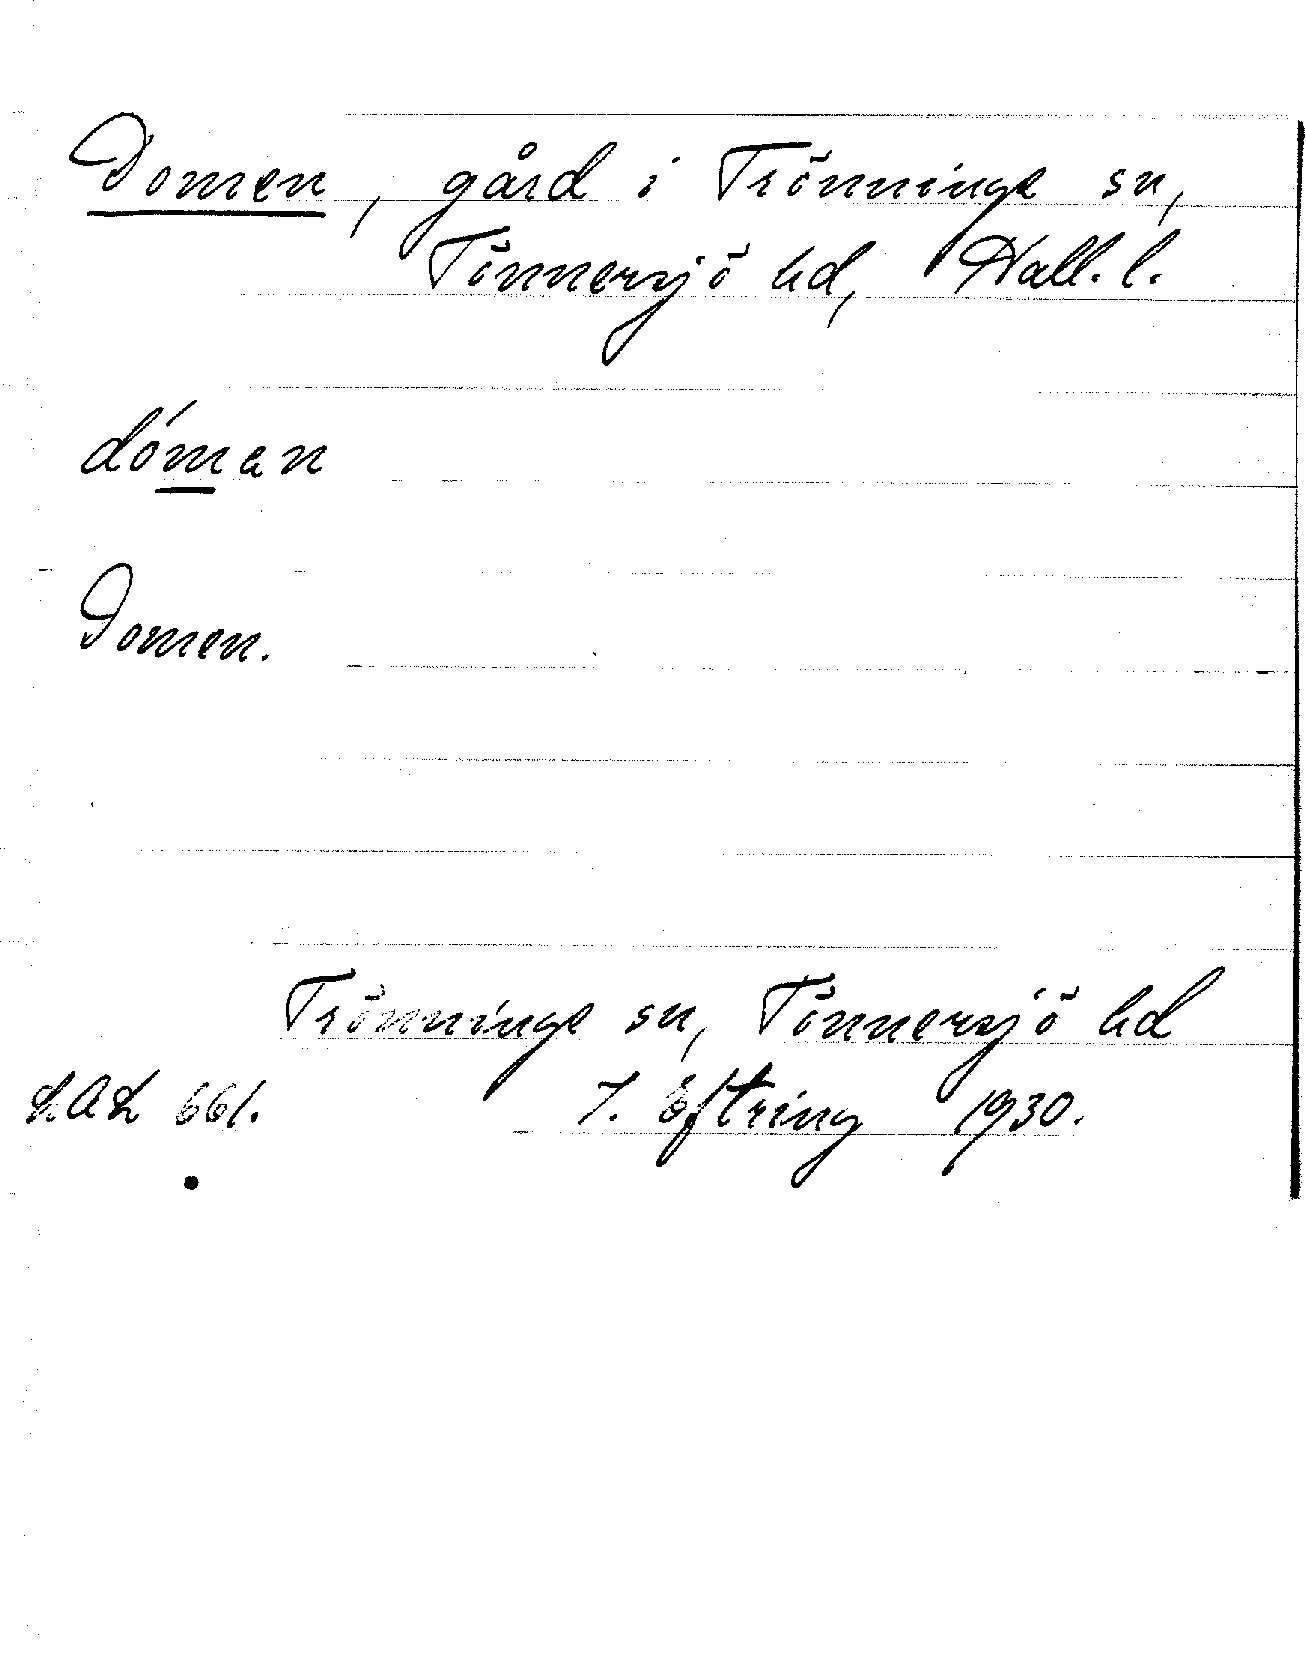 Domen, gård i Trönninge sn,
Tönnersjö hd, Hall. l.
dóman
Domen.
Trönninge sn, Tönnersjö hd
LAL 661. J. Eftring 1930.